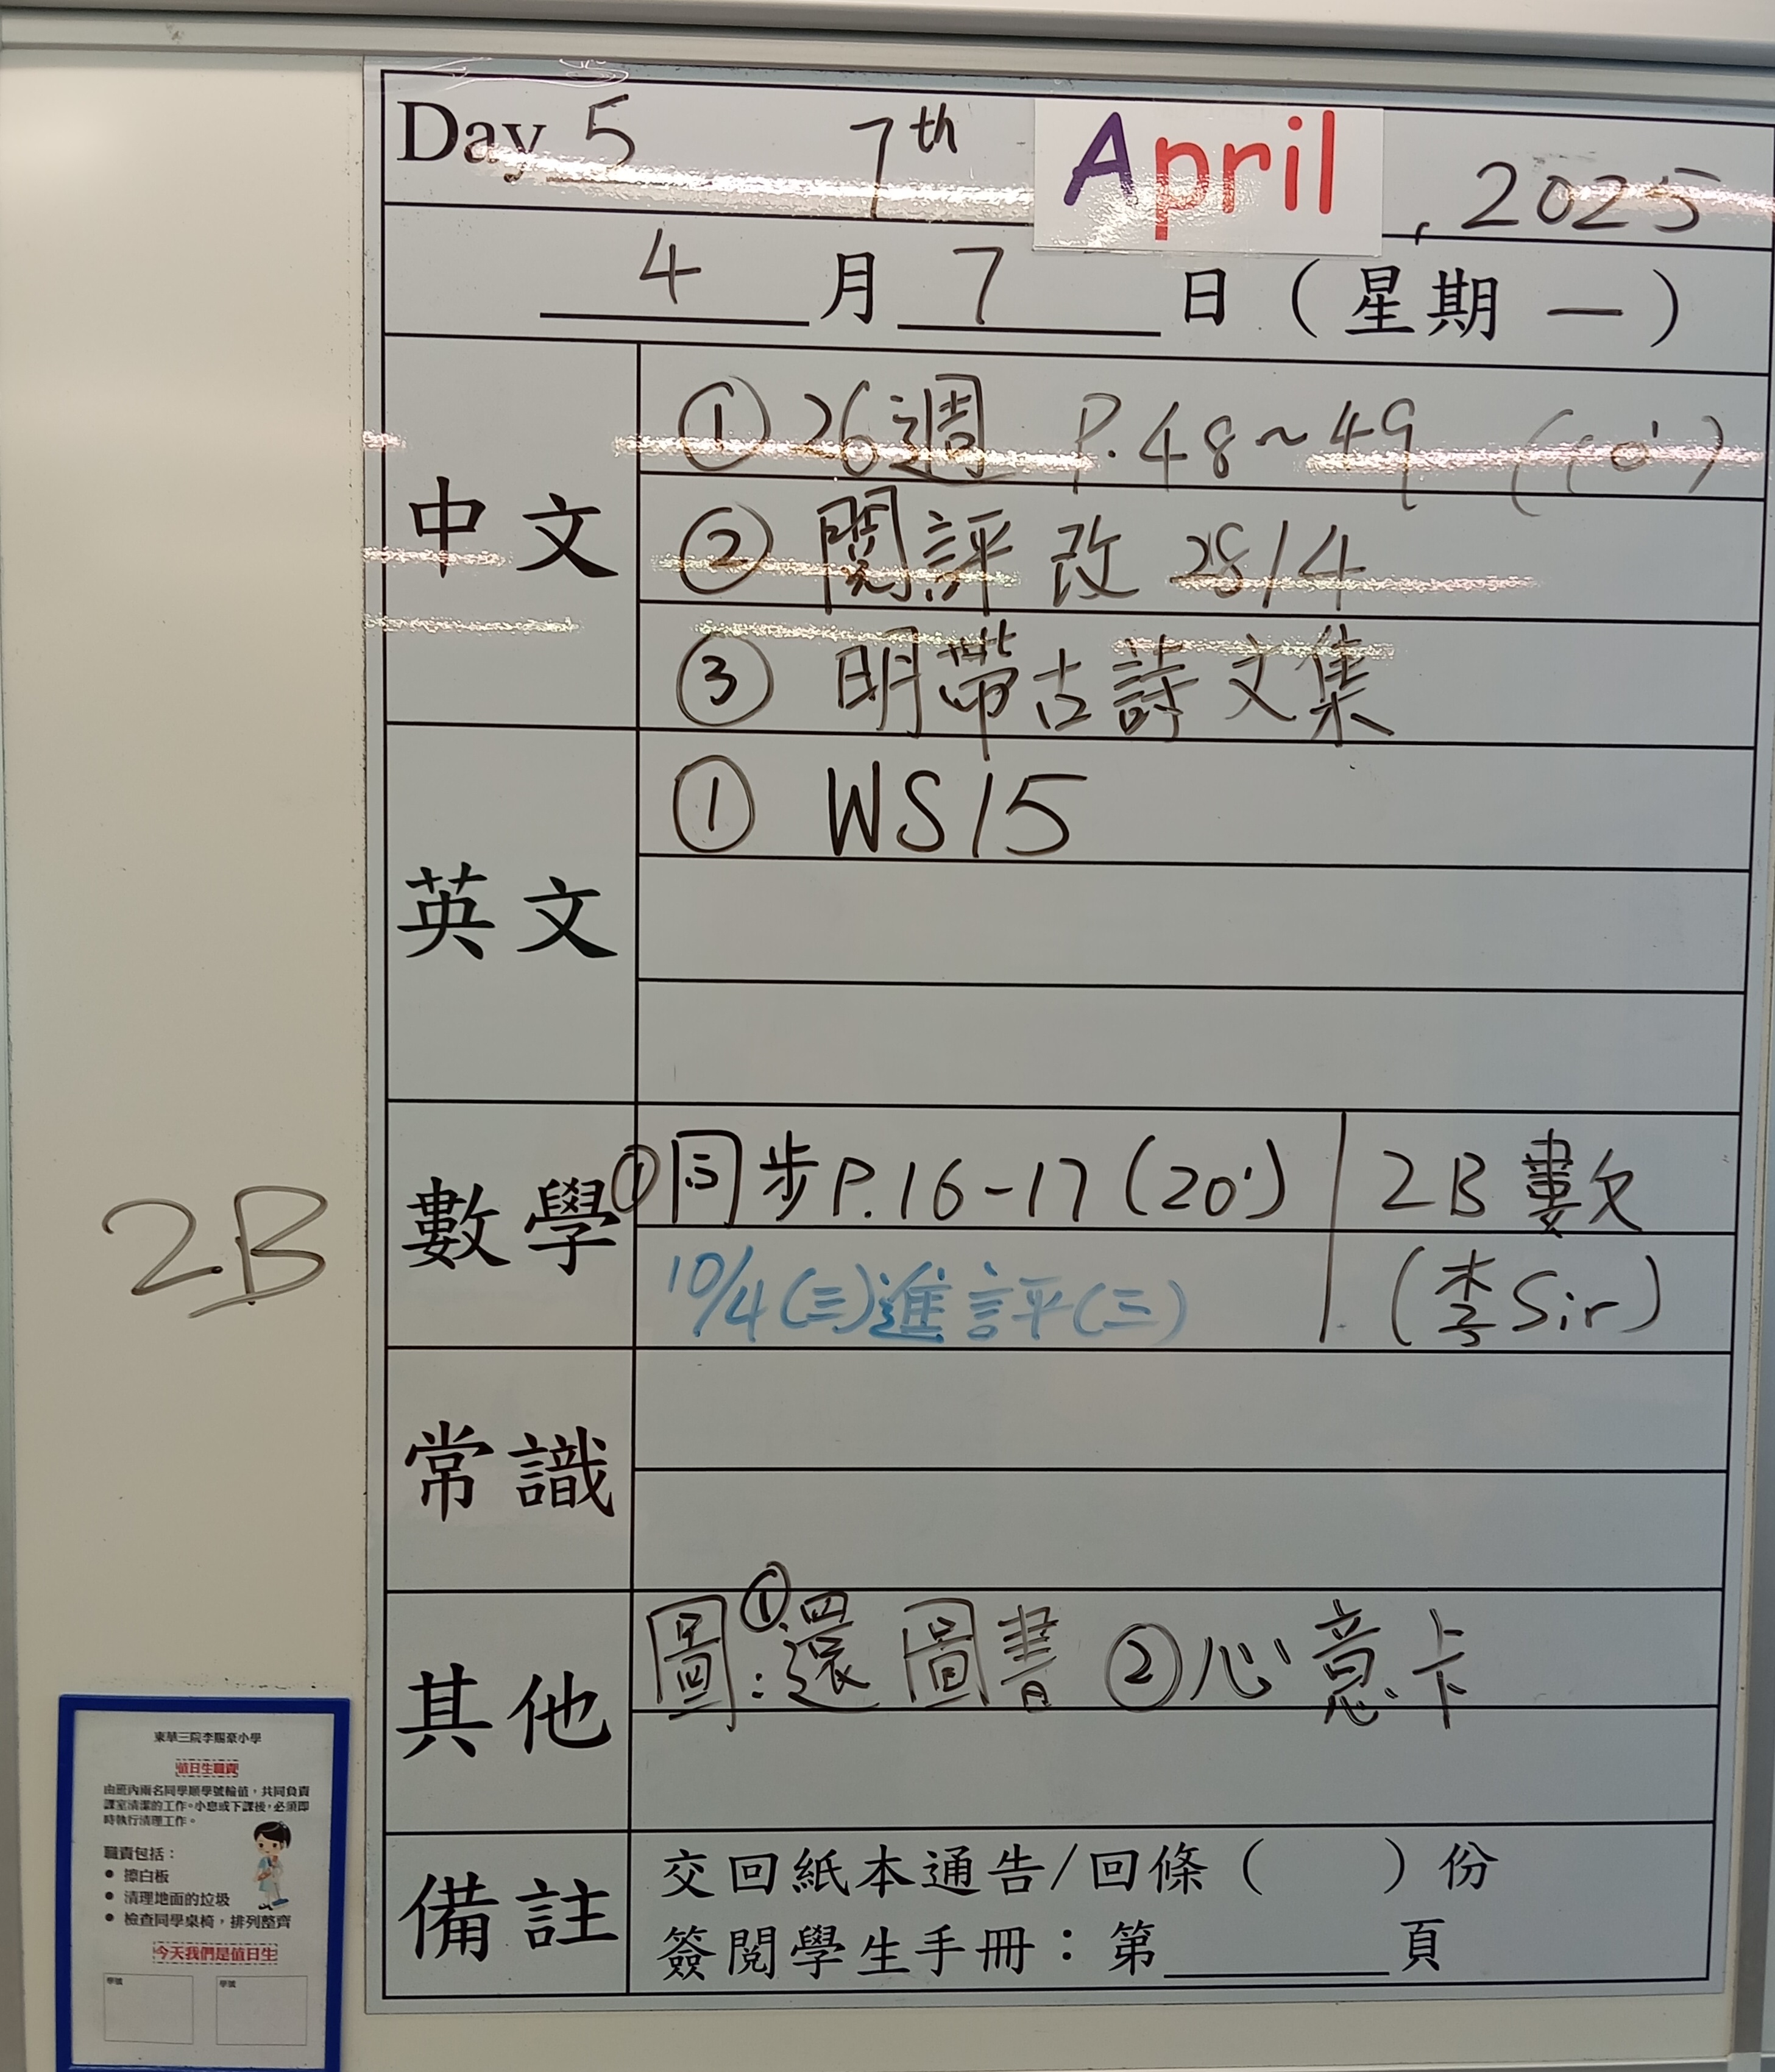 Day 5 7th April , 2025
4 月 7 日 (星期一)
中文
① 26週 P.48~49 (10')
② 閱評 改 28/4
③ 明帶古詩文集
英文
① WS15
數學
① 同步P.16-17 (20')
2B 數
10/4 (三)進評(三)
(李Sir)
常識
其他
圖:①還圖書 ②心意卡
備註
交回紙本通告/回條( )份
簽閱學生手冊:第______頁
2B
東華三院李賜豪小學
值日生職責
由班內兩名同學順學號輪值,共同負責
課室清潔的工作。小息或下課後,必須即
時執行清理工作。
職責包括:
● 擦白板
● 清理地面的垃圾
● 檢查同學桌椅,排列整齊
今天我們是值日生
學號 學號